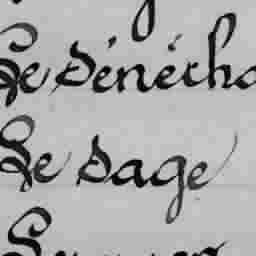 Le sénécha
Le sage